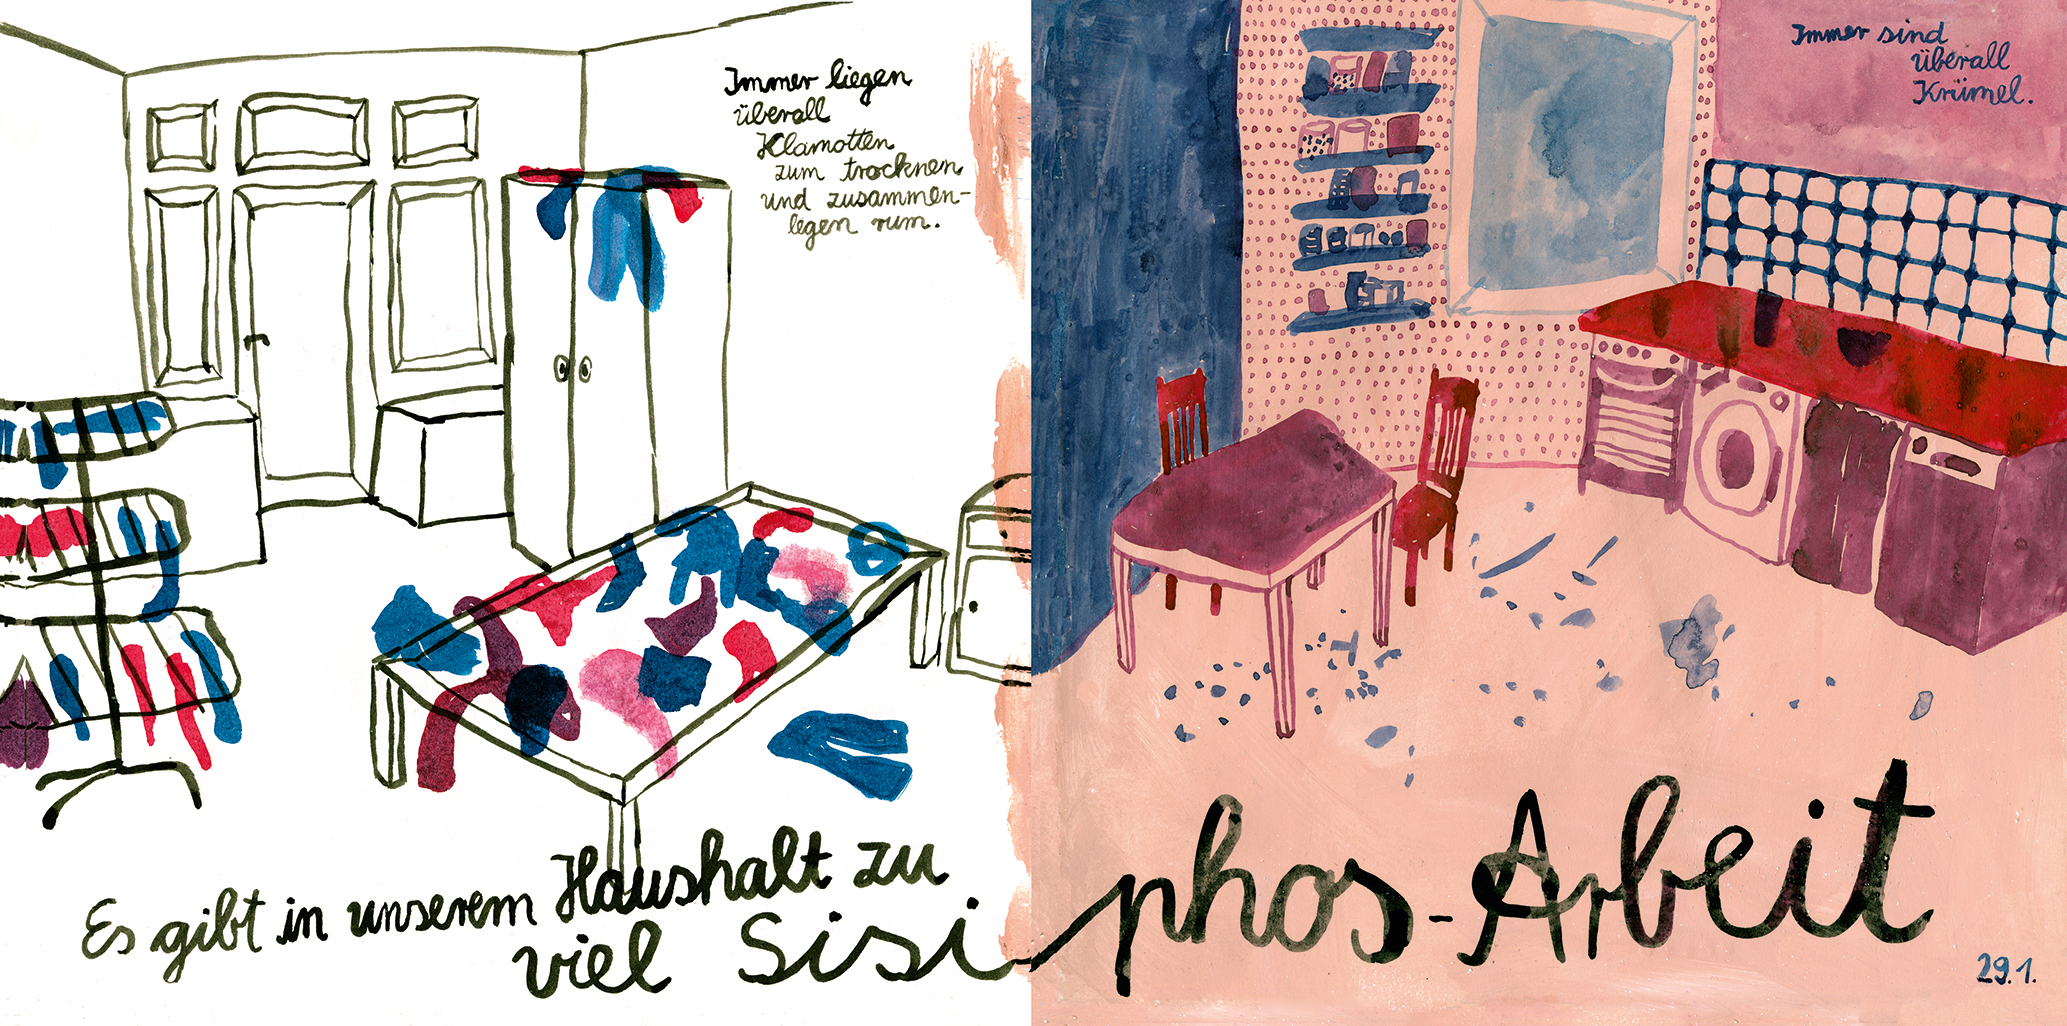 Immer liegen
überall
Klamotten
zum trocknen
und zusammen-
legen rum.
Immer sind
überall
Krümel.
Es gibt in unserem Haushalt zu
viel Sisiphos-Arbeit
29.1.